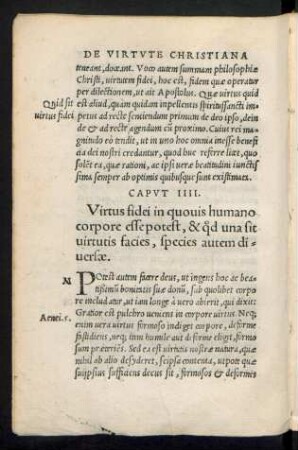 DE VIRTVTE CHRISTIANA
teneant, doceant. Voco autem summam philosophiæ
Christi, virtutem fidei, hoc est, fidem quæ operatur
per dilectionem, ut ait Apostolus. Quæ virtus quid
Quid sit
est aliud, quàm quidam inpellentis spiritussancti im
virtus fidei
petus ad rectè sentiendum primum de deo ipso, dein
de & ad rectè agendum cũ proximo. Cuius rei ma
gnitudo eò tendit, ut in uno hoc omnia inesse benefi
cia dei nostri credantur, quod huc referre liceat, quo
solẽt ea, quæ rationi, ac ipsi veræ beatitudini iunctis
sima semper ab optimis quibusque sunt existimata.
CAPVT IIII.
Virtus fidei in quouis humano
corpore esse potest, & qd una sit
virtutis facies, species autem di-
uersæ.
POtest autem facere deus, ut ingens hoc ac bea
tissimũ bonitatis suæ donũ, sub quolibet corpo
re includatur, ut iam longè à vero abierit, qui dixit:
Aenei.5.
Gratior est pulchro veniens in corpore virtus. Neq;
enim vera virtus formoso indiget corpore, deforme
fastidiens, urq; item humile aut deforme eligit, formo
sum præteriens. Sed ea est virtutis nostræ natura, quæ
nihil ab alio desyderet, seipsa contenta, utpote quæ
suijpsius sufficiens decus sit, formosos & deformes